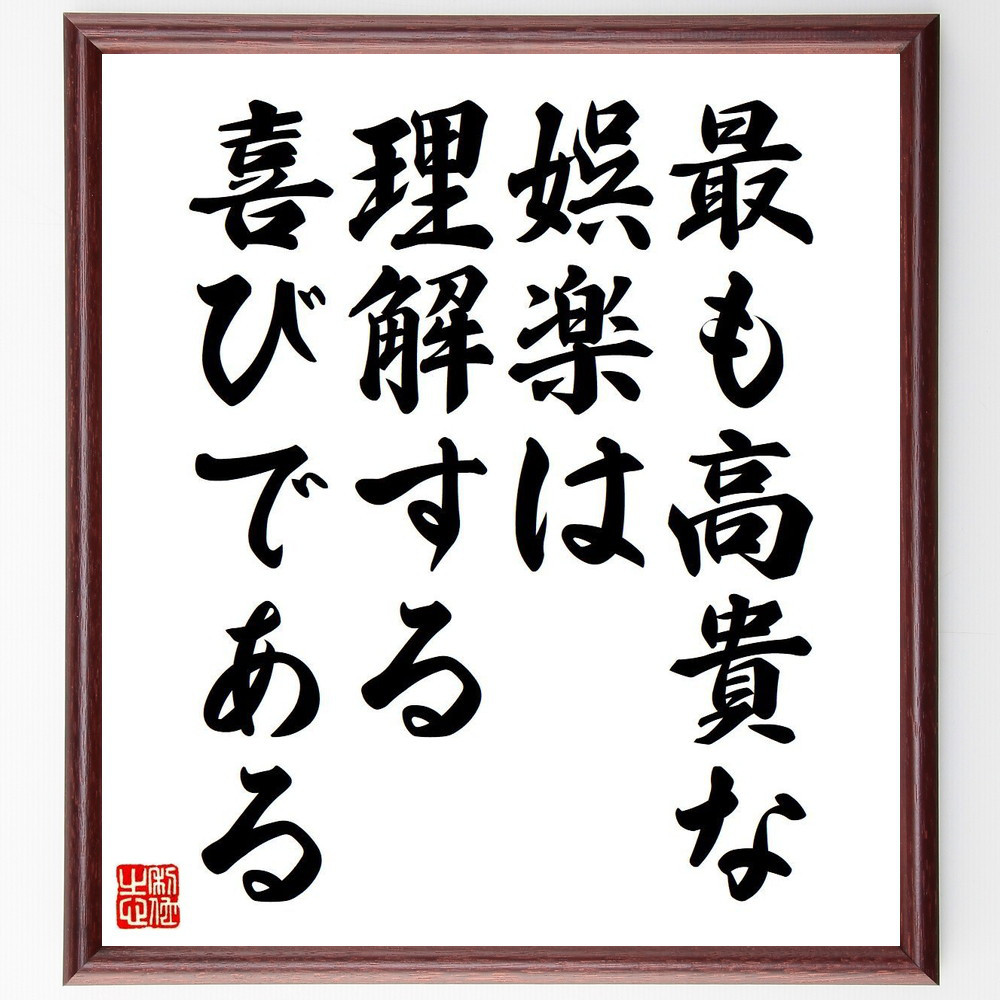 最も高貴な
娯楽は
理解する
喜びである